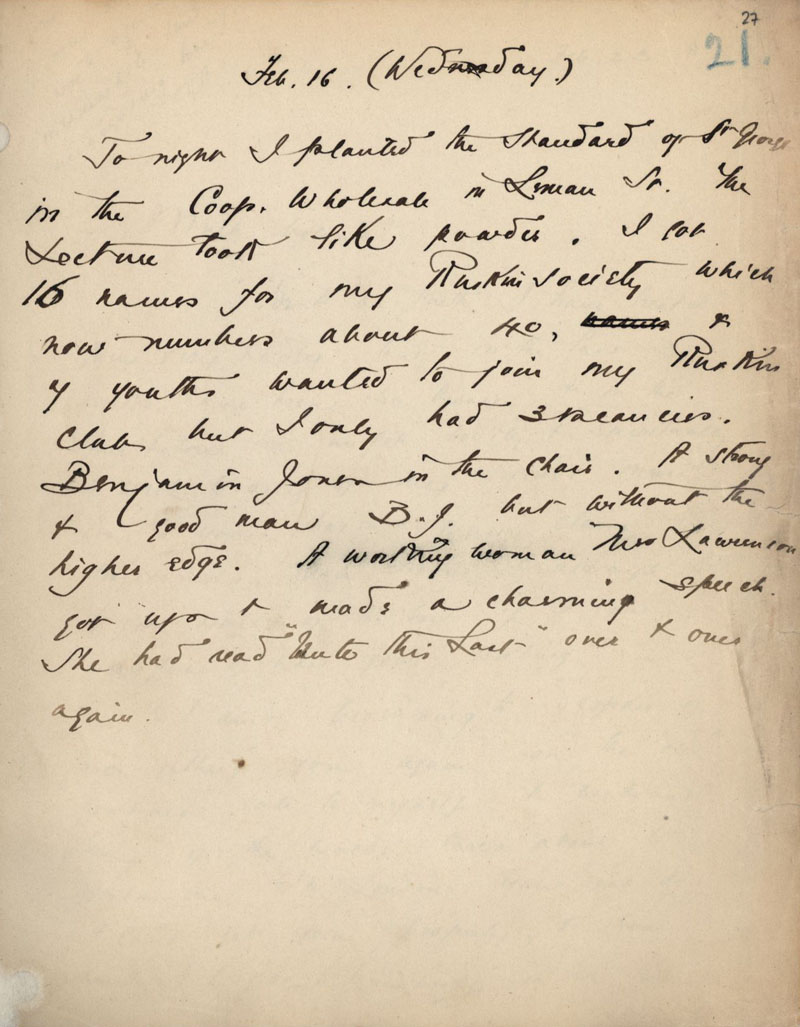 27
21.
Feb. 16. (Wednesday.)
To night I planted the Standard of St George
in the Coop. Wholesale in Leman St. The
Lecture took like powder. I got
16 names for my Ruskin Society which
now numbers about 40, names &
7 youths wanted to join my Ruskin
Club but I only had 3 vacancies.
Benjamin Jones in the chair. A strong
& good man B.J. but without the
higher edge. A working woman Mrs Lawrenson
got up & made a charming speech.
She had read "Unto this Last" over & over
again.